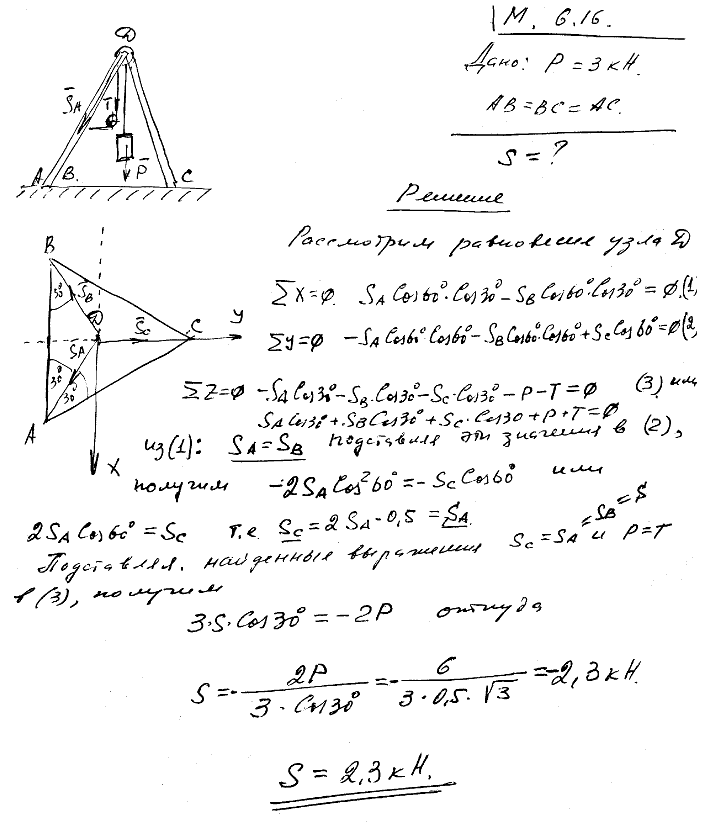 М. 6.16.
Дано: P = 3 кН.
AB = BC = AC.
S = ?
Решение
D
S̄A
T
A B. P̄ C
Рассмотрим равновесие узла D
B
30° S̄B
D S̄C C y
SA
30°
30°
A
X
ΣX=0. SA Cos60°·Cos30° – SB Cos60°·Cos30° = 0. (1)
Σy=0 –SA Cos60° Cos60° – SB Cos60° Cos60° + SC Cos60° = 0 (2,
ΣZ=0 –SA Cos30° – SB·Cos30° – SC·Cos30° – P – T = 0 (3) или
SA Cos30° + SB Cos30° + SC·Cos30 + P + T = 0
из (1): SA = SB подставляя эти значения в (2),
получим –2SA Cos²60° = –SC Cos60° или
2SA Cos60° = SC т.е. SC = 2SA·0,5 = SA.
Подставляя найденные выражения SC = SA = SB = S и P = T
в (3), получим
3·S·Cos30° = –2P откуда
S = – 2P / 3·Cos30° = – 6 / 3·0,5·√3 = –2,3 кН.
S = 2,3 кН.